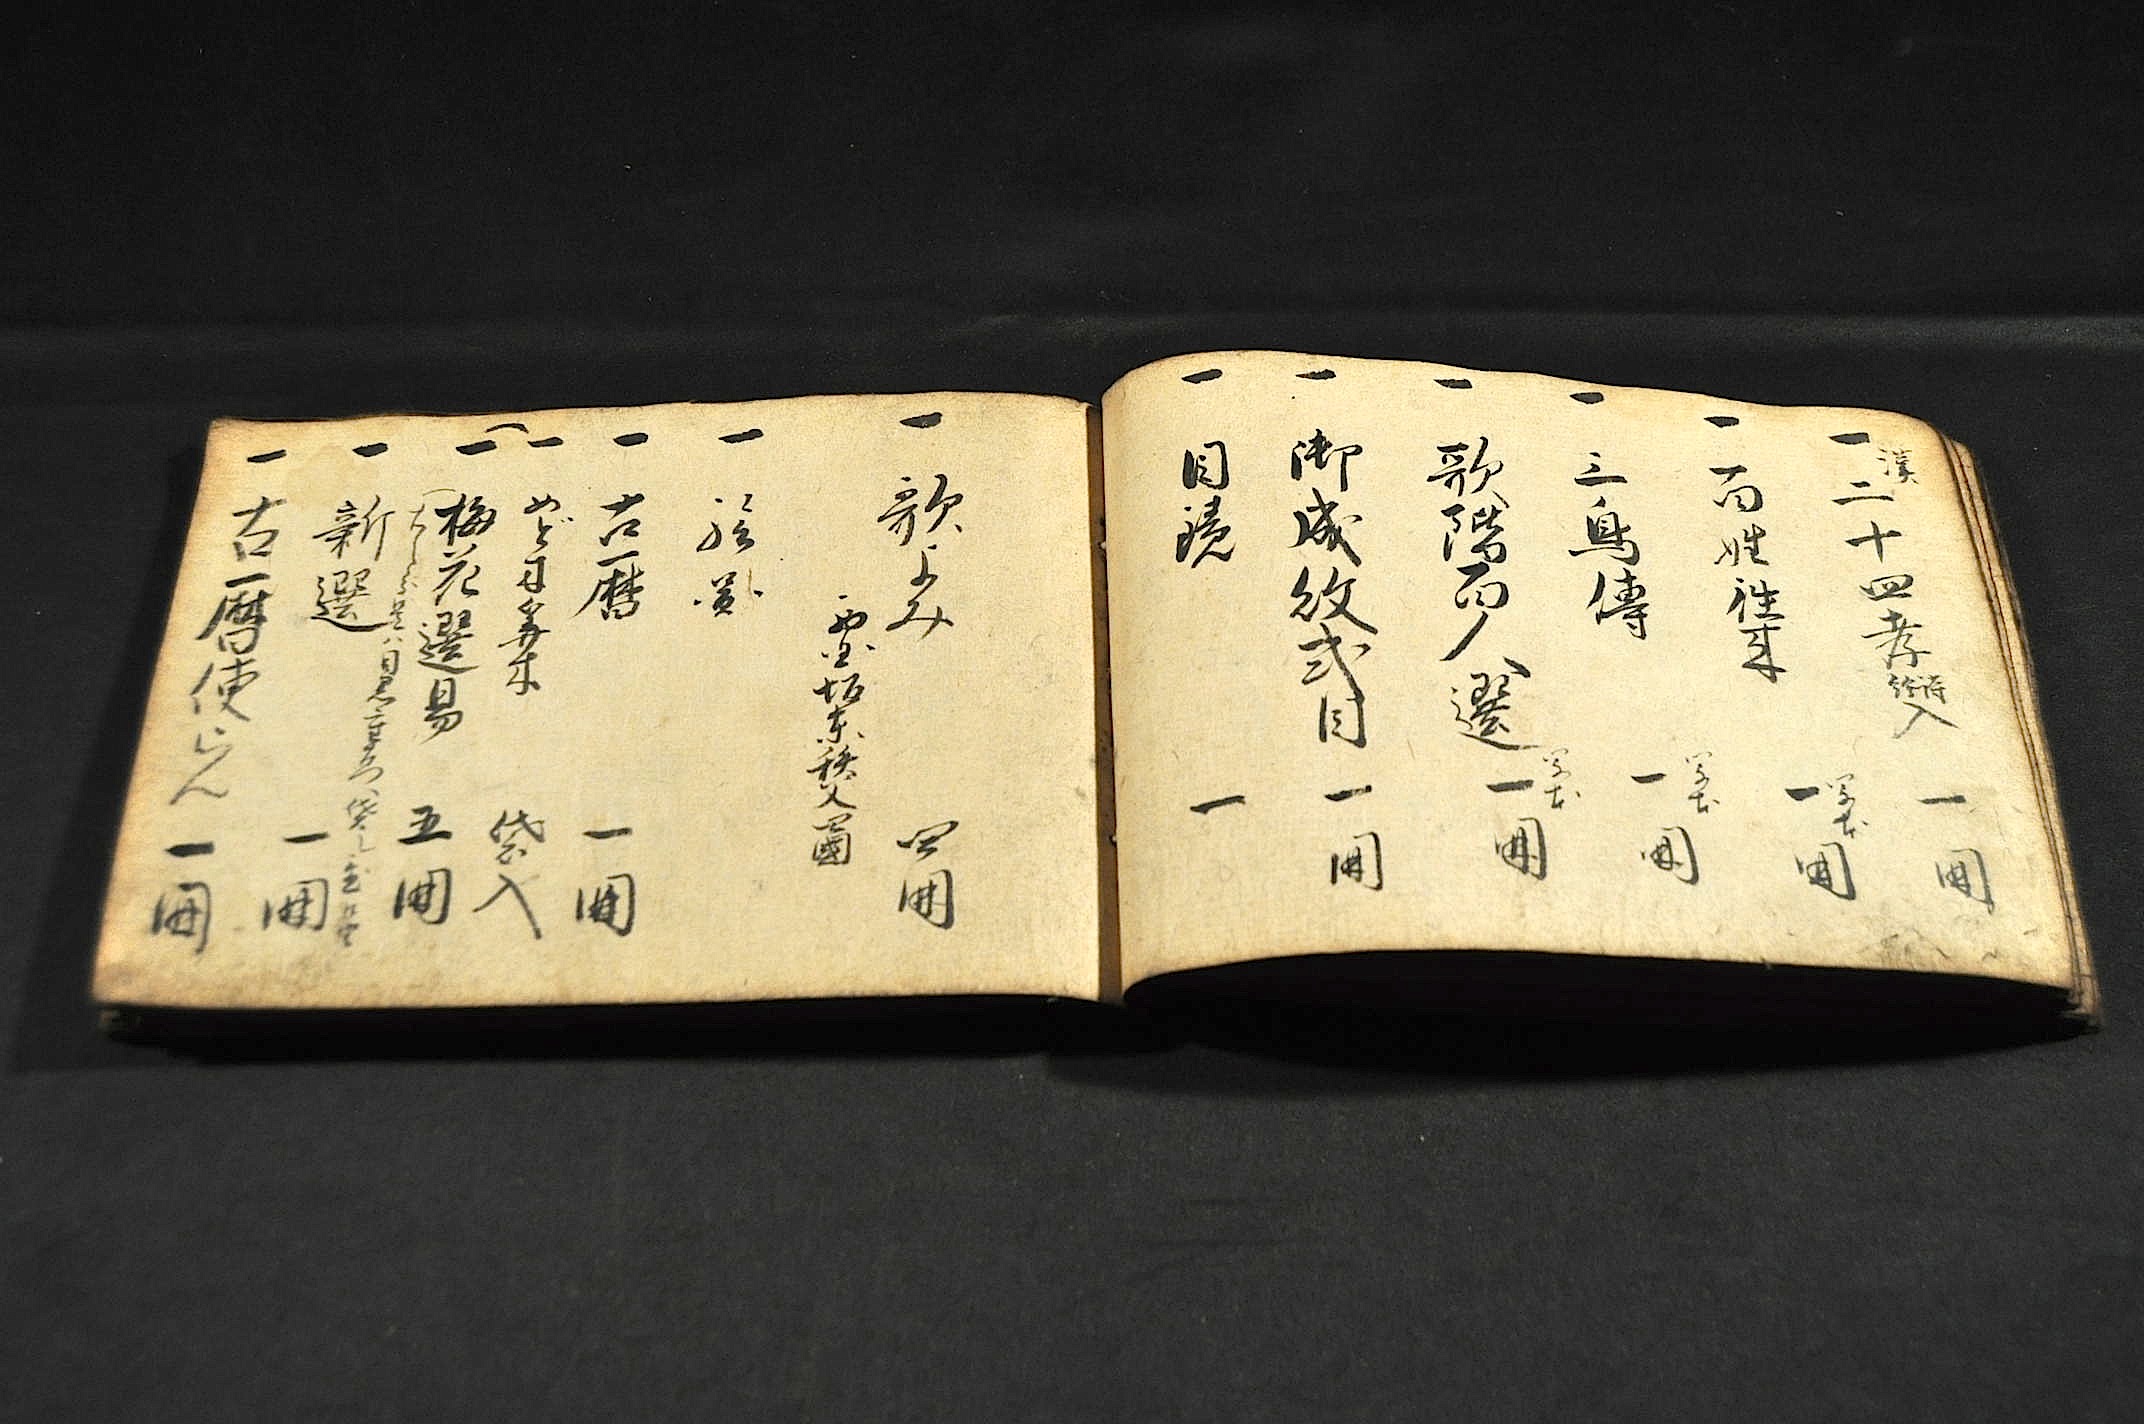 一 漢 二十四孝 詩絵入 一冊
一 百姓往来 写本 一冊
一 三鳥傳 写本 一冊
一 歌階百人選 写本 一冊
一 御成敗式目 一冊
一 目鏡 一
一 歌よみ 四冊
西国坂東秩父図
一
一 古暦 一冊
一 めど木算木 袋入
一 梅花選易 五冊
一 新選 一冊
一 古暦便らん 一冊